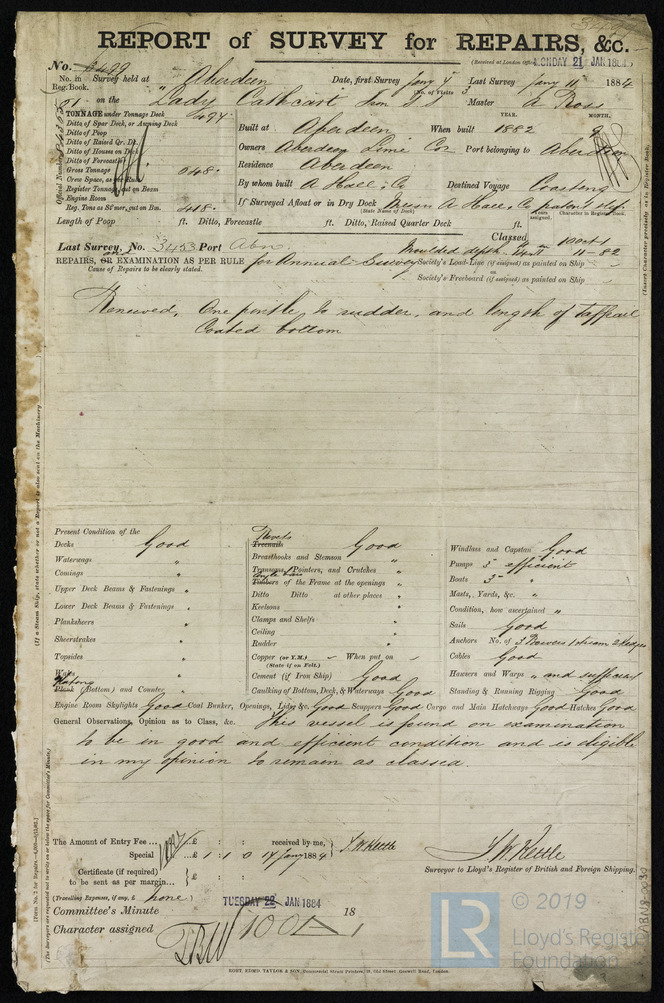 REPORT of SURVEY for REPAIRS, &c.
(Received at London Office MONDAY 21 JAN 1884
No. 3499
No. in Reg. Book. Survey held at Aberdeen Date, first Survey Jany 4 Last Survey Jany 11 1884
(No. of Visits 3
on the Lady Cathcart Iron S S Master A Ross
TONNAGE under Tonnage Deck 497
Ditto of Spar Deck, or Awning Deck
Ditto of Poop
Ditto of Raised Qr. Dk.
Ditto of Houses on Dk.
Ditto of Forecastle
Gross Tonnage
Crew Space, as per Rule
Register Tonnage, cut on Beam
Engine Room
Reg. Tons as St'mer, cut on Bm. 418
YEAR. MONTH.
Built at Aberdeen When built 1882 9
Owners Aberdeen Lime Co Port belonging to Aberdeen
Residence Aberdeen
By whom built A Hall & Co Destined Voyage Coasting
If Surveyed Afloat or in Dry Dock Messrs A Hall & Co patent slip
(State Name of Dock)
Length of Poop ft. Ditto, Forecastle ft. Ditto, Raised Quarter Deck ft.
Classed
Last Survey, No. 3453 Port Abn.
Moulded depth
11-82
REPAIRS, OR EXAMINATION AS PER RULE and for Annual Survey
Society's Load-Line (if assigned) as painted on Ship
Cause of Repairs to be clearly stated.
Society's Freeboard (if assigned) as painted on Ship
Renewed, One pintle to rudder, and length of taffrail
Coated bottom
Present Condition of the
Decks Good
Waterways "
Comings "
Upper Deck Beams & Fastenings "
Lower Deck Beams & Fastenings "
Planksheers "
Sheerstrakes "
Topsides "
Wales "
Plating Plank (Bottom) and Counter "
Rivets Treenails Good
Breasthooks and Stemson "
Transoms, Pointers, and Crutches "
Angle bars Timbers of the Frame at the openings "
Ditto Ditto at other places "
Keelsons "
Clamps and Shelfs "
Ceiling "
Rudder "
Copper (or Y.M.) When put on
(State if on Felt.)
Cement (if Iron Ship) Good
Caulking of Bottom, Deck, & Waterways Good
Windlass and Capstan Good
Pumps 5 efficient
Boats 3 "
Masts, Yards, &c. "
Condition, how ascertained "
Sails Good
Anchors No. of 3 Bowers 1 stream 2 Kedges
Cables Good
Hawsers and Warps " and sufficient
Standing & Running Rigging Good
Engine Room Skylights Good Coal Bunker, Openings, Lids, &c. Good Scuppers Good Cargo and Main Hatchways Good Hatches Good
General Observations, Opinion as to Class, &c. This vessel is found on examination
to be in good and efficient condition and is eligible
in my opinion to remain as classed.
The Amount of Entry Fee ... £ : : received by me,
Special ... £ 1 : 1 : 0 14 Jany 1884 J W Kettle
Certificate (if required) £ : :
to be sent as per margin...
(Travelling Expenses, if any, £ none )
J. W. Kettle
Surveyor to Lloyd's Register of British and Foreign Shipping.
Committee's Minute TUESDAY 22 JAN 1884 18
Character assigned 100A1
© 2019
LR
Lloyd's Register
Foundation